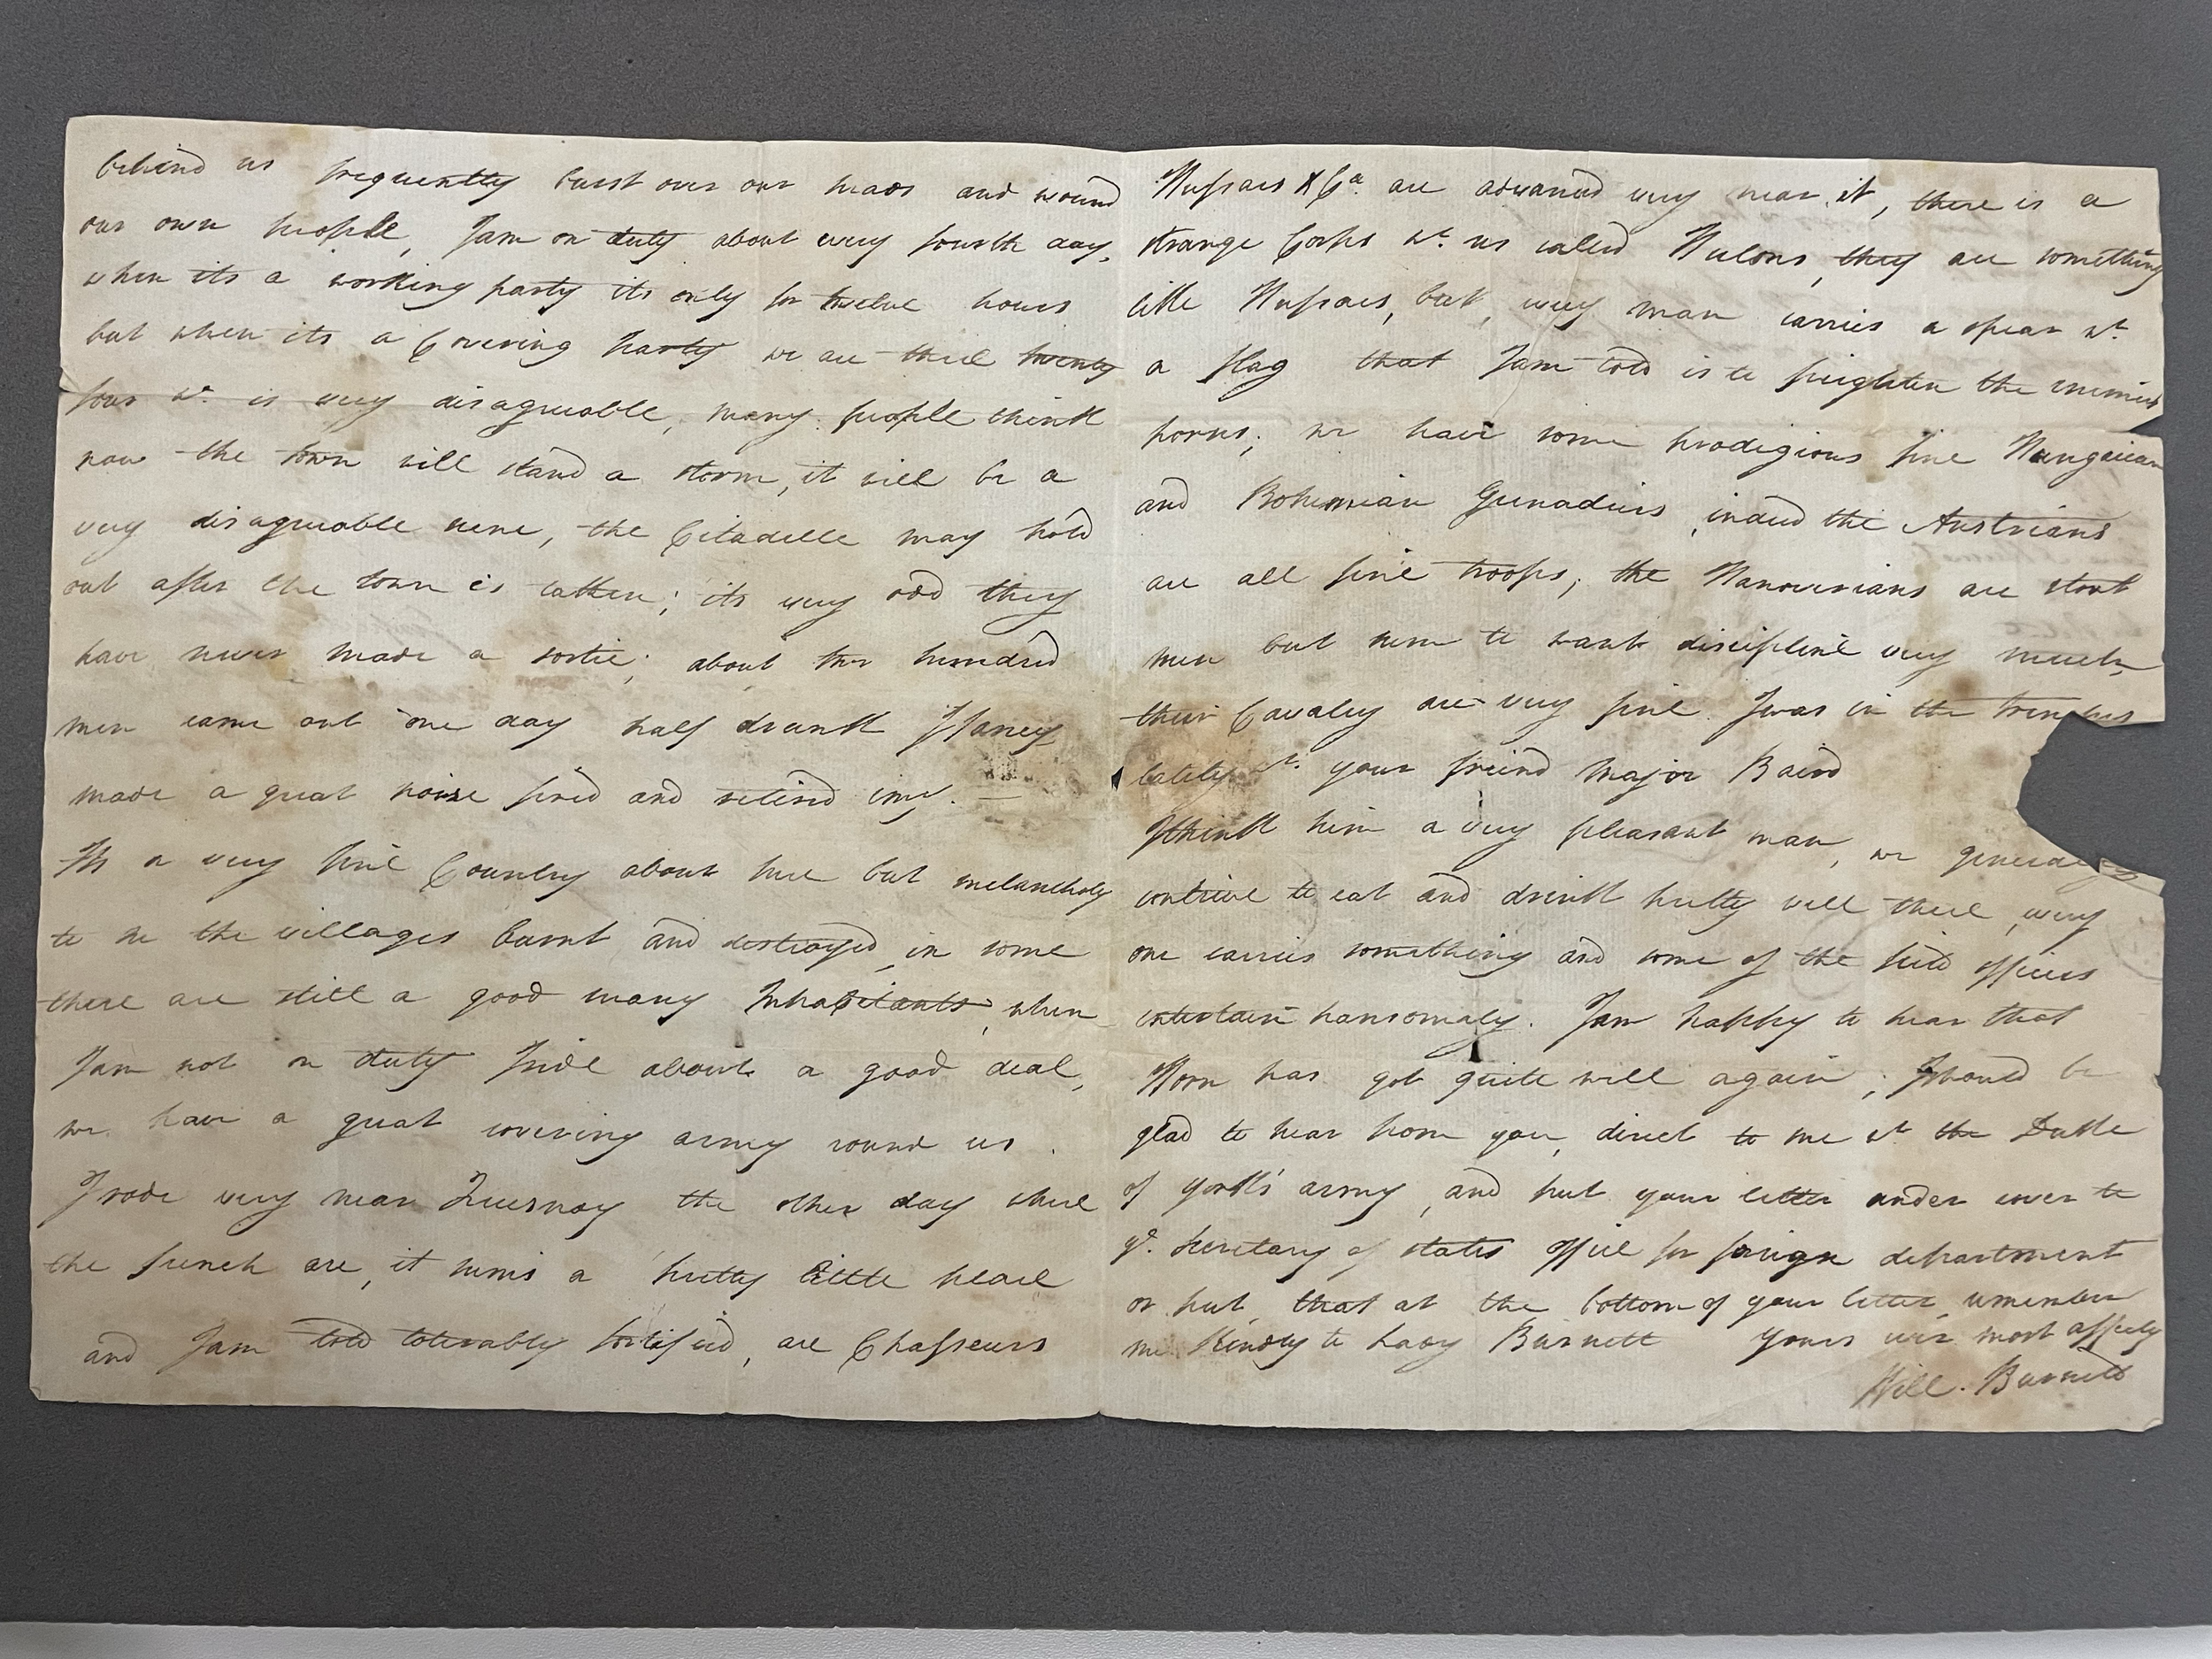 behind us frequently burst over our heads and wound
our own people, I am on duty about every fourth day,
when its a working party its only for twelve hours
but when its a Covering party we are there twenty
four wh. is very disagreeable, many people think
now the town will stand a storm, it will be a
very disagreeable scene, the Citadelle may hold
out after the town is taken; its very odd they
have never made a sortie; about two hundred
men came out one day half drunk I fancy
made a great noise fired and retired
Its a very fine Country about here but melancholy
to see the villages burnt and destroyed, in some
there are still a good many Inhabitants, when
I am not on duty I ride about a good deal,
we have a great covering army round us.
I rode very near Quesnoy the other day where
the french are, it seems a pretty little place
and I am told tolerably fortified, our Chasseurs
Hussars &Ca. are advanced very near it, there is a
strange Corps wt. us called Hulons, they are something
like Hussars, but, every man carries a spear wt.
a flag that I am told is to frighten the enemies
horses; we have some prodigious fine Hungarian
and Bohemian Grenadiers, indeed the Austrians
are all fine troops; the Hanoverians are stout
men but seem to want discipline very much,
their Cavalry are very fine. I was in the trenches
lately wt. your friend Major Baird
I think him a very pleasant man, we generally
contrive to eat and drink pretty well there, every
one carries something and some of the field officers
entertain hansomely. I am happy to hear that
Horn has got quite well again; I should be
glad to hear from you, direct to me wt the Duke
of york's army, and put your letter under cover to
ye. Secretary of states office for foreign department
or put that at the bottom of your letter, remember
me kindly to Lady Burnett yours ever most affecly
Will. Burnett